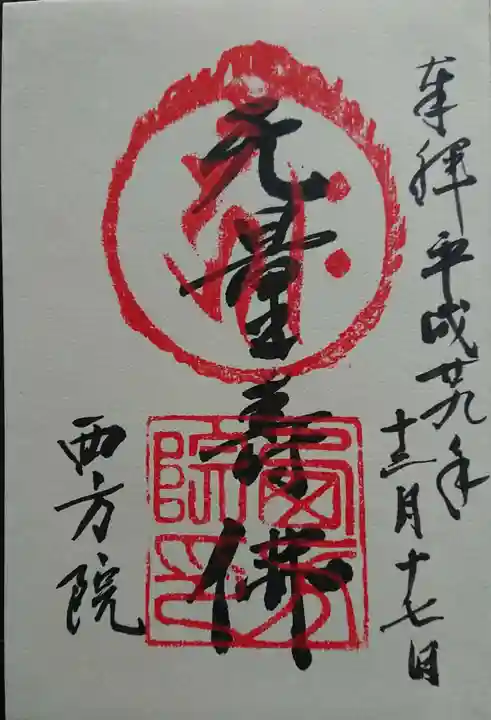 奉拝 平成廿九年
十二月十七日
無量寿佛
西方院
西方院印